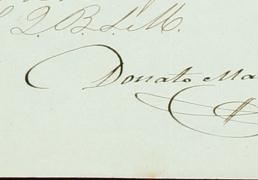 Q. B. S. M.
Donato Ma